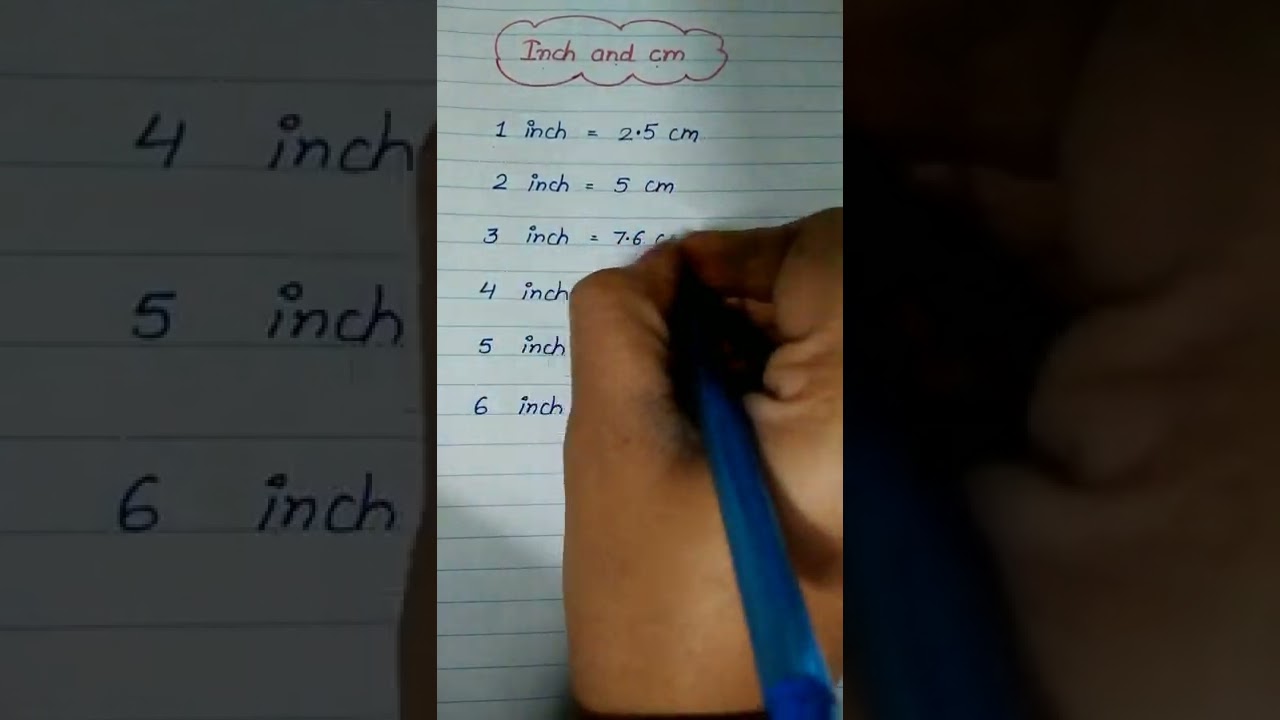 Inch and cm
1 inch = 2.5 cm
2 inch = 5 cm
3 inch = 7.6
4 inch
5 inch
6 inch
4 inch
5 inch
6 inch